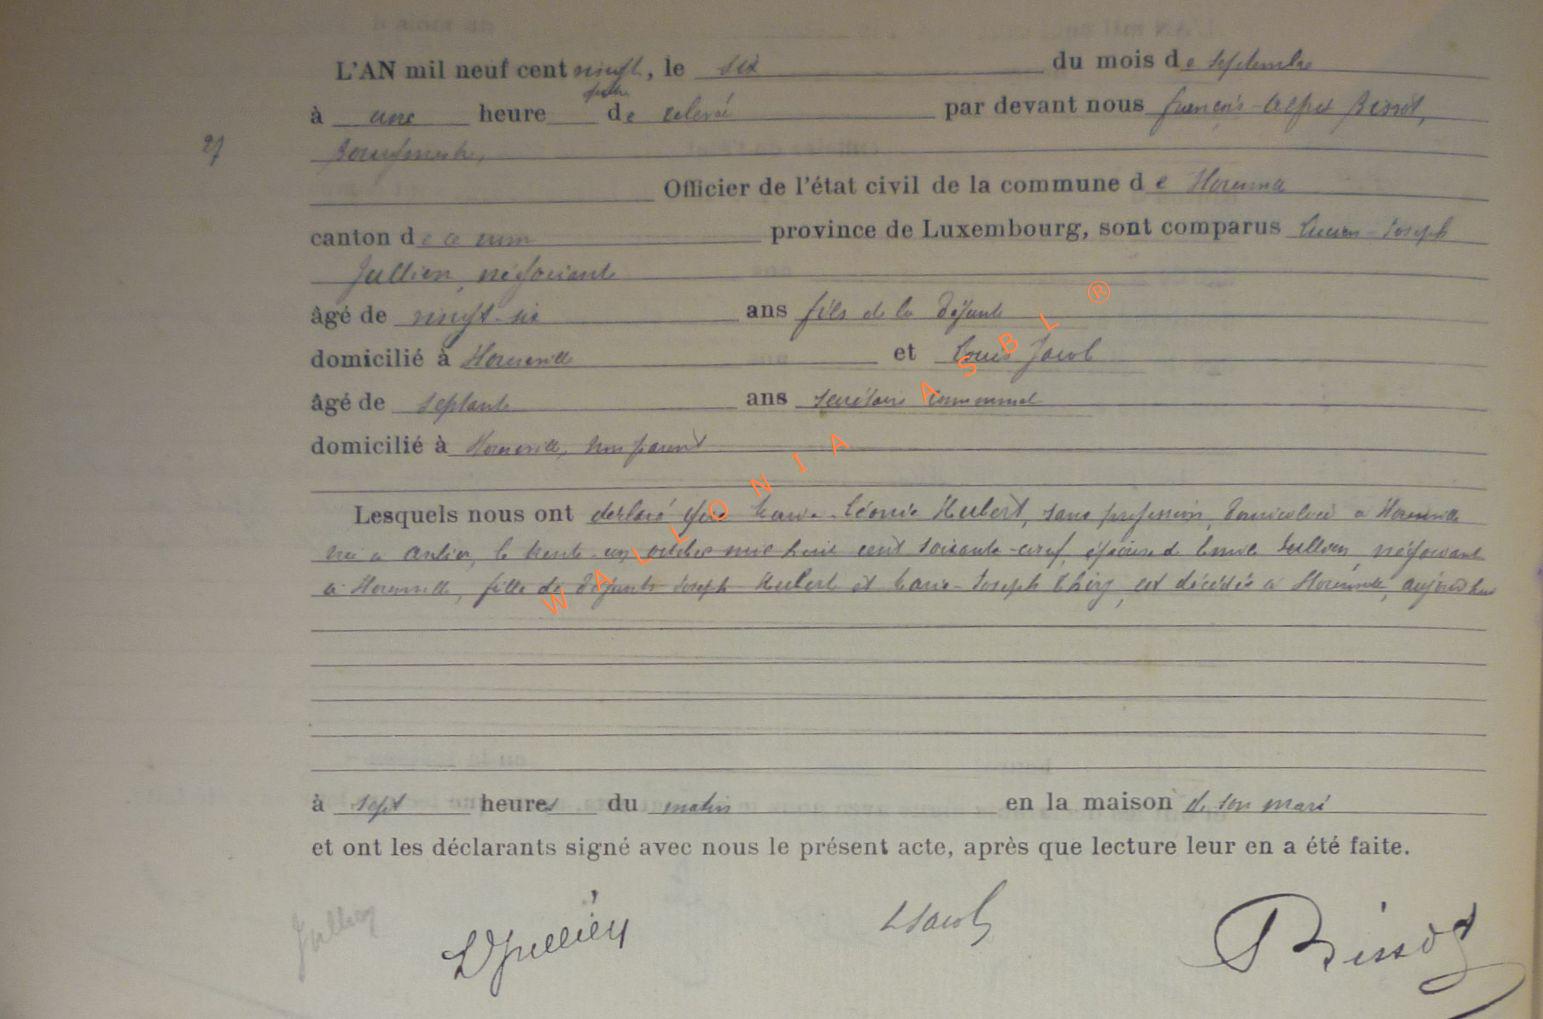 L'AN mil neuf cent vingt, le six du mois de septembre
à une heure de relevé par devant nous françois-Alfred Bissot,
27
Bourgmestre,
Officier de l'état civil de la commune de
canton de province de Luxembourg, sont comparus Lucien-Joseph
Jullien, négociant
âgé de vingt-six ans fils de la défunte
domicilié à et Louis Jacob
âgé de septante ans secrétaire communal
domicilié à non parent
Lesquels nous ont déclaré que Marie-Léonie Hubert, sans profession, domiciliée à
née à Anlier, le trente-un octobre mil huit cent soixante-neuf, épouse d Emile Jullien, négociant
à fille de défunts Joseph Hubert et Marie-Joseph Thiry, est décédée à aujourd'hui
à sept heures du matin en la maison de son mari
et ont les déclarants signé avec nous le présent acte, après que lecture leur en a été faite.
Jullien LJullien LJacob Bissot
WALLONIA ASBL ®